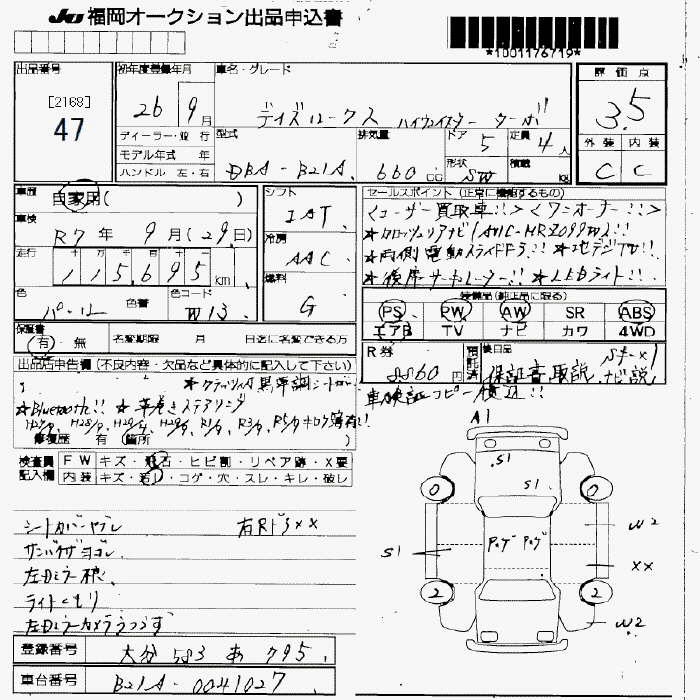 JU 福岡オークション出品申込書
*1001176719*
出品番号
[2168]
47
初年度登録年月
26年 9月
車名・グレード
デイズルークス ハイウェイスター ターボ
評価点
3.5
外装 内装
C C
ディーラー・並行
モデル年式 年
ハンドル 左・右
型式
DBA-B21A
排気量
660 cc
ドア
5
定員
4人
形状
SW
積載
kg
車歴
自家用( )
車検
R7年 9月(29日)
走行
十万 万 千 百 十 一
115,695 km
色
パール
色替
色コード
W13
シフト
IAT
冷房
AAC
燃料
G
セールスポイント (正常に機能するもの)
<ユーザー買取車!!><ワンオーナー!!>
★両側電動スライドドア!! ★地デジTV!!
★後席サーキュレーター!! ★LEDライト!!
装備品(純正品に限る)
PS PW AW SR ABS
エアB TV ナビ カワ 4WD
保証書
有・無
名変期限 月 日迄に名変できる方
R券
8860円
後日品
保証書 取説 ナビ説
車検証コピー
出品店申告欄 (不良内容・欠品など具体的に記入して下さい)
黒革調シート
★Bluetooth!! ★革巻きステアリング
修復歴 有 (箇所 )
検査員記入欄
FW キズ・飛石・ヒビ割・リペア跡・X要
内装 キズ・汚レ・コゲ・穴・スレ・キレ・破レ
シートカバーヤブレ
有RドアXX
サンバイザヨゴレ
左Dミラー根
ライトくもり
左Dミラーカメラうつらず
登録番号
大分 583 あ 795
車台番号
B21A-0041027
A1
S1
S1
0
0
W2
S1
XX
2
2
W2